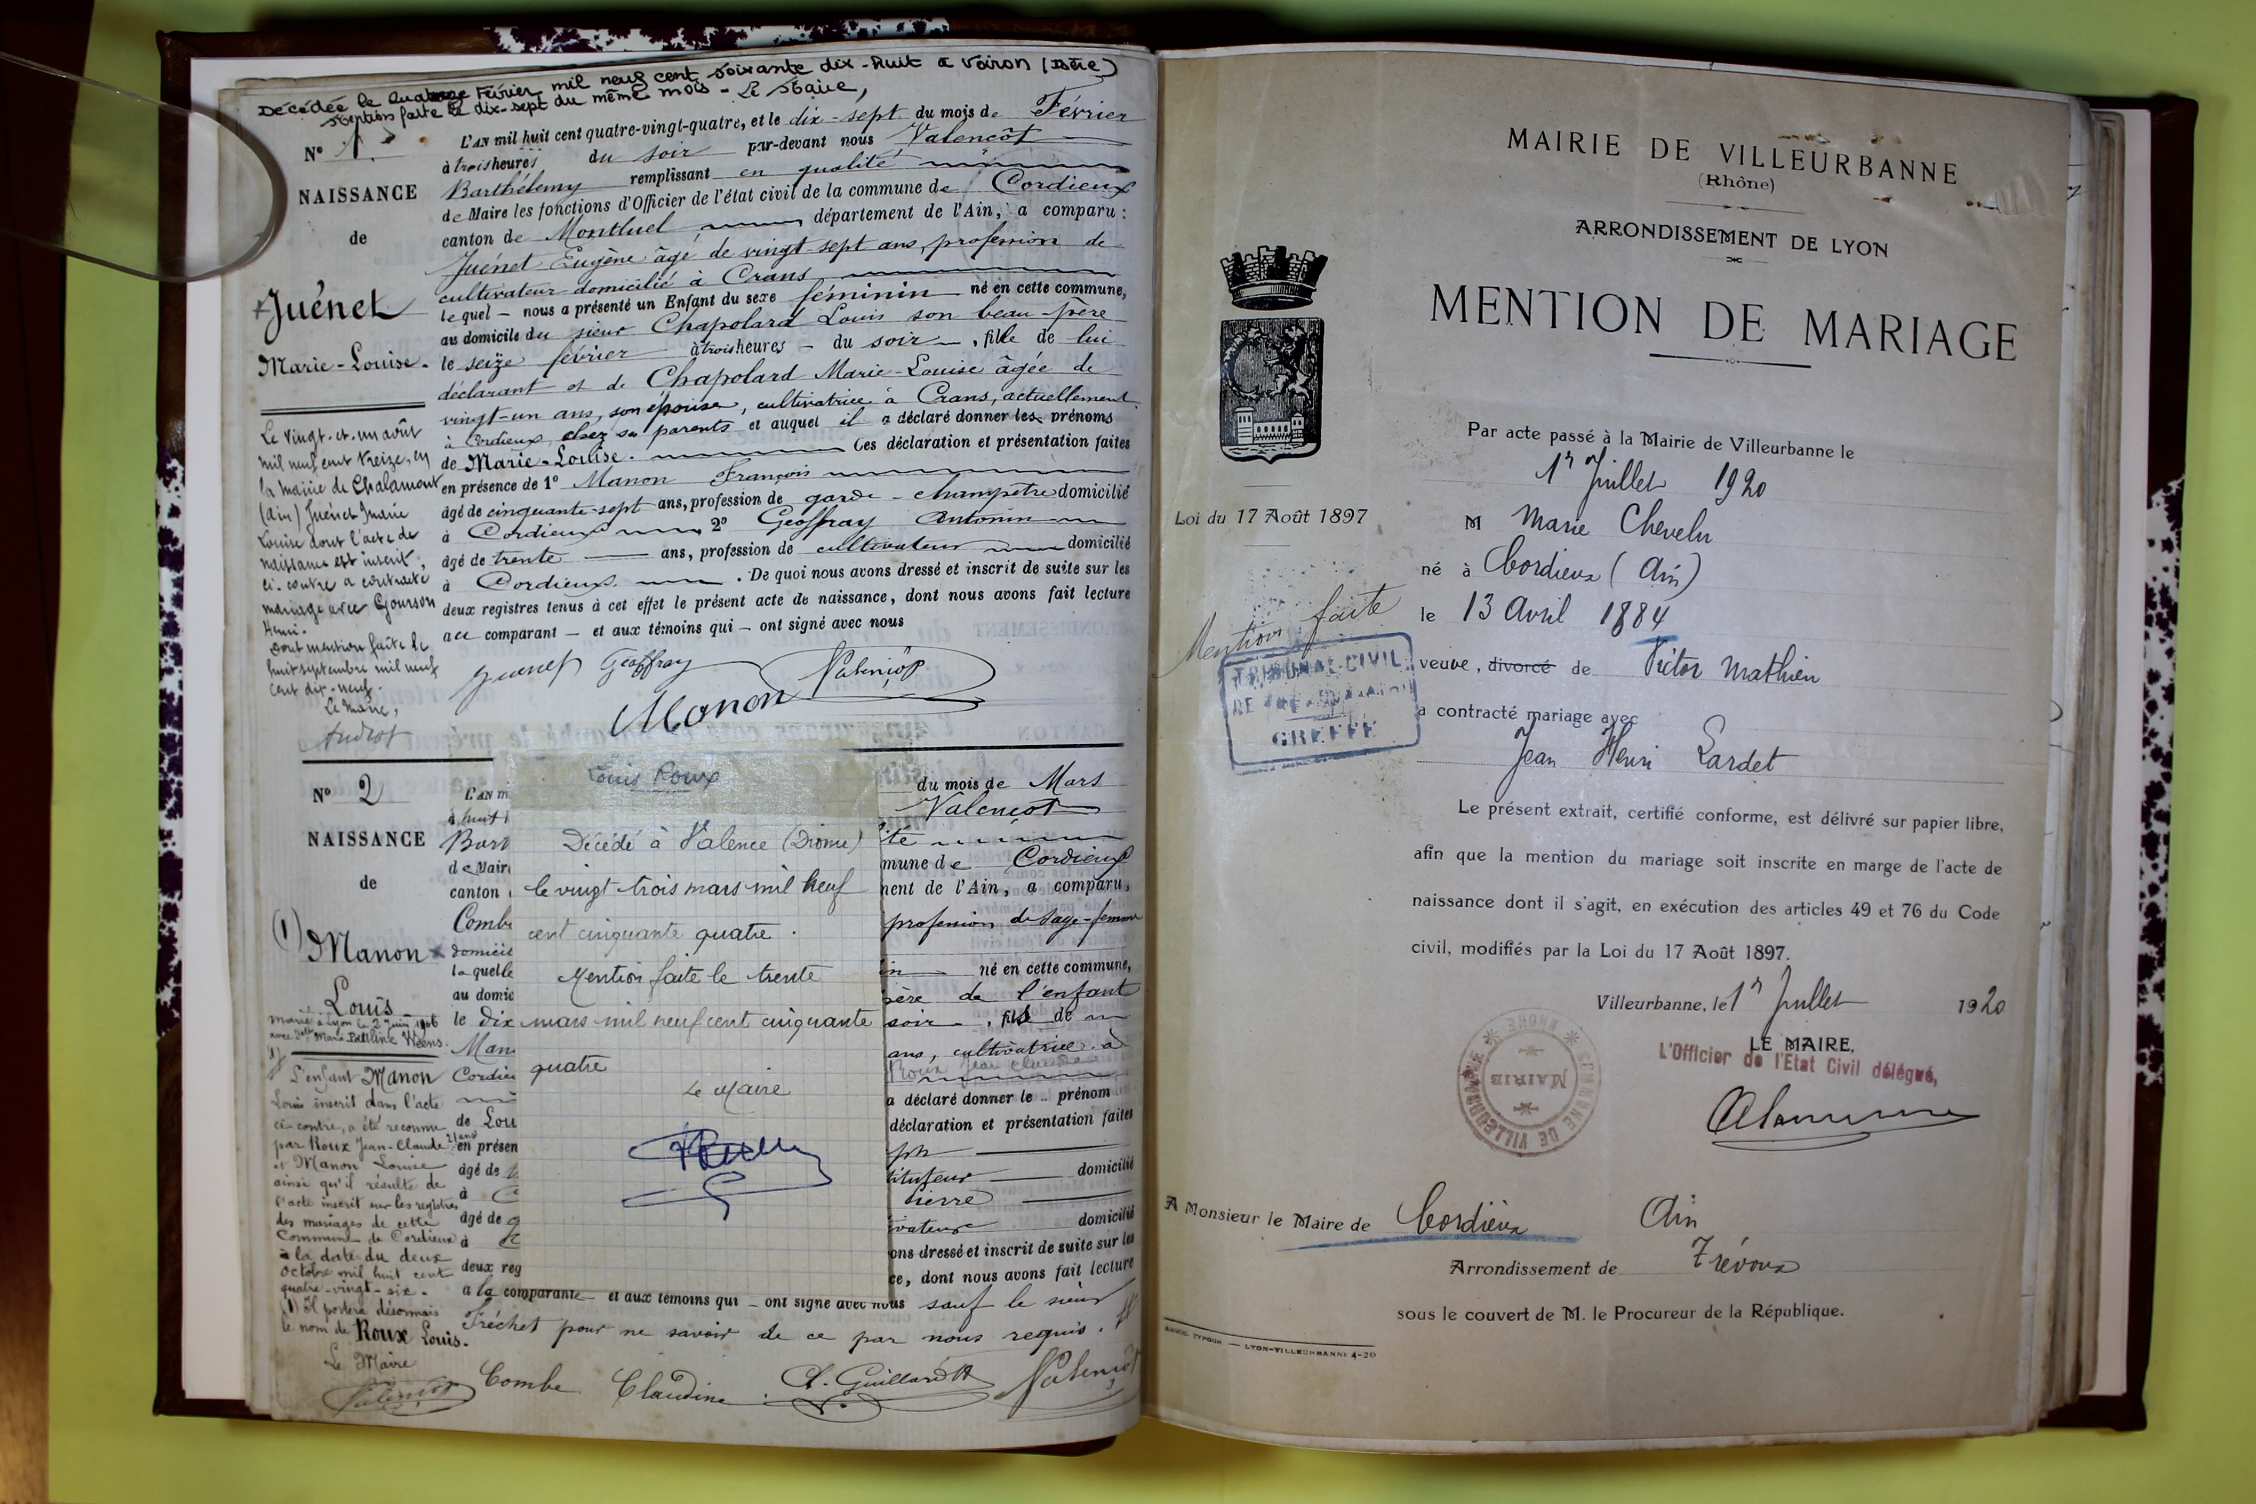 Décédée le Quatorze Février mil neuf cent soixante dix-huit à Voiron (Isère)
Mention faite le dix-sept du même mois - Le Maire,
N° 1.
NAISSANCE
de
Juénet
Marie-Louise.
L'AN mil huit cent quatre-vingt-quatre, et le dix-sept du mois de Février
à trois heures du soir par-devant nous Valençôt
Barthélemy remplissant en qualité
de Maire les fonctions d'Officier de l'état civil de la commune de Cordieux
canton de Montluel département de l'Ain, a comparu :
Juénet Eugène âgé de vingt-sept ans, profession de
cultivateur domicilié à Crans
lequel nous a présenté un Enfant du sexe féminin né en cette commune,
au domicile du sieur Chapolard Louis son beau-père
le seize février à trois heures du soir, fille de lui
déclarant et de Chapolard Marie-Louise âgée de
vingt-un ans, son épouse, cultivatrice à Crans, actuellement
à Cordieux chez ses parents et auquel il a déclaré donner les prénoms
de Marie-Louise. Ces déclaration et présentation faites
en présence de 1° Manon François
âgé de cinquante-sept ans, profession de garde-champêtre domicilié
à Cordieux 2° Geoffray Antonin
âgé de trente ans, profession de cultivateur domicilié
à Cordieux. De quoi nous avons dressé et inscrit de suite sur les
deux registres tenus à cet effet le présent acte de naissance, dont nous avons fait lecture
au comparant et aux témoins qui ont signé avec nous
Juenet Geoffray Valençôt
Manon
Le vingt-et-un août
mil neuf cent treize, en
la mairie de Chalamont
(Ain) Juénet Marie
Louise dont l'acte de
naissance est inscrit,
ci-contre a contracté
mariage avec Gourson
Henri.
Dont mention faite le
huit septembre mil neuf
cent dix-neuf.
Le Maire,
N° 2
NAISSANCE
de
(1) Manon
Louis
marié à Lyon le 2 Juin 1906
avec Delle Marie Pauline Weens.
L'enfant Manon
Louis inscrit dans l'acte
ci-contre, a été reconnu
par Roux Jean-Claude 21 ans
et Manon Louise
ainsi qu'il résulte de
l'acte inscrit sur les registres
des mariages de cette
Commune de Cordieux
à la date du deux
octobre mil huit cent
quatre-vingt-six.
(1) Il portera désormais
le nom de Roux Louis.
Le Maire
Valençôt
L'AN m
à huit h
Bart
de Mair
canton
Combe
domicil
laquelle
au domic
le dix
Man
Cordieu
de Lou
en présen
âgé de
à
âgé de
à
deux reg
Louis Roux
Décédé à Valence (Drôme)
le vingt trois mars mil neuf
cent cinquante quatre.
Mention faite le trente
mars mil neuf cent cinquante
quatre
Le Maire
du mois de Mars
Valençot
ité
mune de Cordieux
nent de l'Ain, a comparu,
profession de sage-femme
in né en cette commune,
père de l'enfant
soir, fils de
ans, cultivatrice à
Roux Jean Claude
a déclaré donner le prénom
déclaration et présentation faites
ph
tituteur domicilié
Pierre
ivateur domicilié
ons dressé et inscrit de suite sur les
ce, dont nous avons fait lecture
à la comparante et aux témoins qui ont signé avec nous sauf le sieur
Fréchet pour ne savoir de ce par nous requis.
Combe Claudine. A. Guillard Valençôt
MAIRIE DE VILLEURBANNE
(Rhône)
ARRONDISSEMENT DE LYON
MENTION DE MARIAGE
Loi du 17 Août 1897
Mention faite
TRIBUNAL CIVIL
GREFFE
Par acte passé à la Mairie de Villeurbanne le
1r Juillet 1920
M Marie Chevelu
né à Cordieux (Ain)
le 13 Avril 1884
veuve, divorcé de Victor Mathieu
a contracté mariage avec
Jean Henri Lardet
Le présent extrait, certifié conforme, est délivré sur papier libre,
afin que la mention du mariage soit inscrite en marge de l'acte de
naissance dont il s'agit, en exécution des articles 49 et 76 du Code
civil, modifiés par la Loi du 17 Août 1897.
Villeurbanne, le 1r Juillet 1920
LE MAIRE,
L'Officier de l'Etat Civil délégué,
COMMUNE DE VILLEURBANNE
RHONE
MAIRIE
A Monsieur le Maire de Cordieux Ain
Arrondissement de Trévoux
sous le couvert de M. le Procureur de la République.
LYON-VILLEURBANNE 4-20